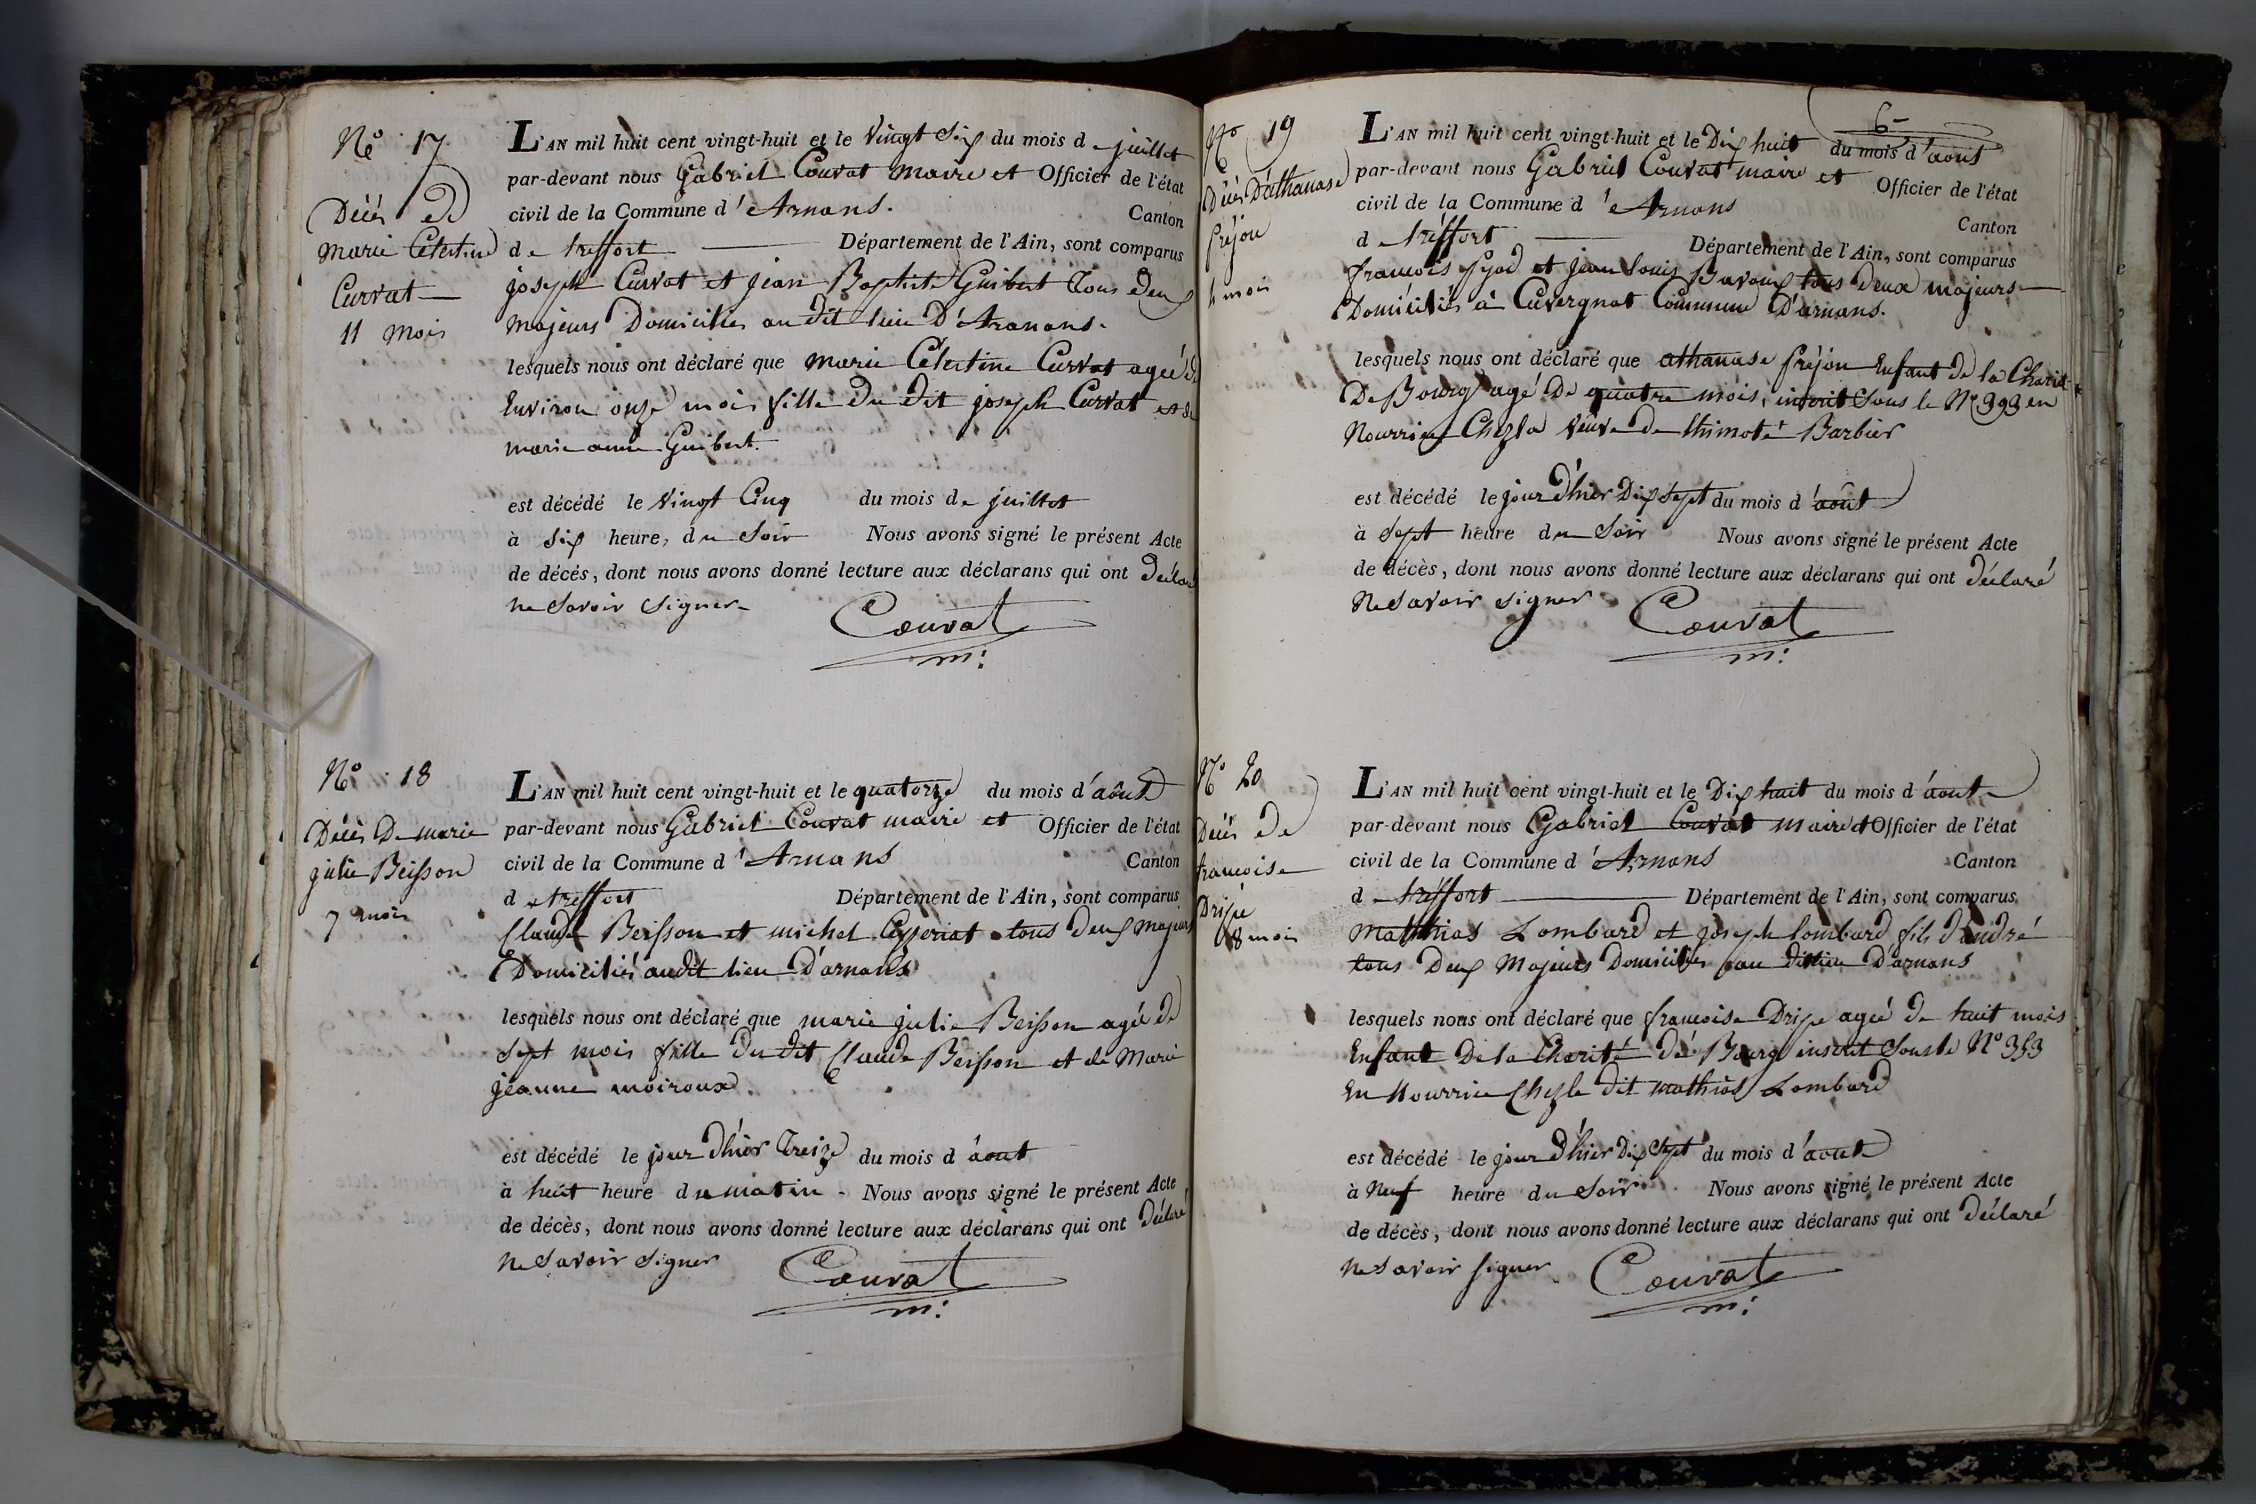 N° 17
Décès de
marie Célestine
Curvat
11 mois
L'AN mil huit cent vingt-huit et le vingt six du mois de juillet
par-devant nous Gabriel Couvat maire et Officier de l'état
civil de la Commune d'Arnans. Canton
de treffort Département de l'Ain, sont comparus
joseph Curvat et jean Baptiste Guibert Tous deux
majeurs Domiciliés au dit lieu D'Arnans.
lesquels nous ont déclaré que marie Célestine Curvat agée de
Environ onze mois fille du dit joseph Curvat et de
marie anne Guibert.
est décédé le vingt Cinq du mois de juillet
à six heure, du Soir Nous avons signé le présent Acte
de décés, dont nous avons donné lecture aux déclarans qui ont déclaré
ne Savoir Signer
Couvat
m:
N° 18
Décès De marie
julie Beisson
7 mois
L'AN mil huit cent vingt-huit et le quatorze du mois d'août
par-devant nous Gabriel Couvat maire et Officier de l'état
civil de la Commune d'Arnans Canton
de treffort Département de l'Ain, sont comparus
Claude Beisson et michel tous deux majeurs
Domiciliés audit lieu D'arnans
lesquels nous ont déclaré que marie julie Beisson agée de
sept mois fille du dit Claude Beisson et de Marie
jeanne moiroux
est décédé le jour d'hier treize du mois d'aout
à huit heure du matin. Nous avons signé le présent Acte
de décès, dont nous avons donné lecture aux déclarans qui ont déclaré
ne Savoir Signer
Couvat
m:
6
N° 19
Décès D'athanase
fréjon
4 mois
L'AN mil huit cent vingt-huit et le Dix huit du mois d'août
par-devant nous Gabriel Couvat maire et Officier de l'état
civil de la Commune d'Arnans Canton
de treffort Département de l'Ain, sont comparus
francois et jean louis Bavoux tous deux majeurs
Domiciliés à Cuvergnat Commune D'arnans.
lesquels nous ont déclaré que athanase fréjon Enfant de la Charité
De Bourg agé De quatre mois, inscrit Sous le N° 393 en
Nourrice Chez la veuve de thimoté Barbier
est décédé le jour d'hier Dix sept du mois d'août
à sept heure du Soir Nous avons signé le présent Acte
de décès, dont nous avons donné lecture aux déclarans qui ont déclaré
Ne Savoir signer
Couvat
m:
N° 20
Décès de
francoise
Dripe
8 mois
L'AN mil huit cent vingt-huit et le Dix huit du mois d'aout
par-devant nous Gabriel Couvat maire et Officier de l'état
civil de la Commune d'Arnans Canton
de treffort Département de l'Ain, sont comparus
Matthias Lombard et joseph lombard fils d'andré
tous Deux Majeurs Domiciliés au dit lieu D'arnans
lesquels nous ont déclaré que francoise Dripe agée de huit mois
Enfant De la Charité de Bourg inscrit Sous le N° 353
En Nourrice Chez le dit mathias Lombard
est décédé le jour d'hier Dix Sept du mois d'aout
à Neuf heure du Soir Nous avons signé le présent Acte
de décès, dont nous avons donné lecture aux déclarans qui ont déclaré
Ne Savoir Signer
Couvat
m: